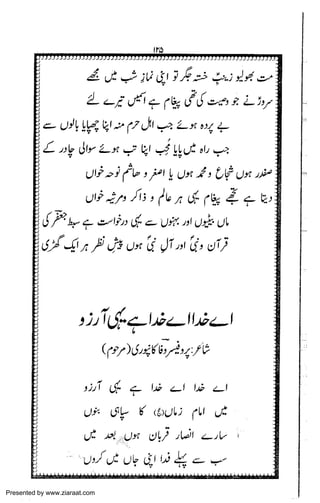 ۱۲۵
مت بھولیو زینبِ خستہ جگر تو اپنی نمازِ شب میں مجھے
سرورؑ نے جو وصیت کی تھی پیغام ہے اسمیں تیرے لئے
بے پردہ ہوئے جب اہل حرم منہ اپنا چھپایا بالوں سے
جب راہ میں پایا نجب اپنا تب ہوئے سوالی چادر کے
صفدر ہوں شجاع و محمد ہوں یا اصغر و ہاشم نوحہ خواں
دیتا ہے تجھے پیغام یہی ہر عالم و ذاکر و مرثیہ خواں
ماں بیٹیوں اور بہنوں سے یہی درخواست ہے سبط جعفر کی
قرآن و نبیؐ اور آلِ نبیؐ ہوں پیشِ نظر ہر ایک گھڑی
اے خدا اے خدا ہے یہی آرزو
شاعر: پروفیسر وفا کانپوری (مرحوم)
اے خدا اے خدا ہے یہی آرزو
میں امام زماں(عج) کا سپاہی بنوں
سارے انصار قربان ہوں بعد میں
سب سے پہلے فدا اپنی جاں میں کروں
Presented by www.ziaraat.com